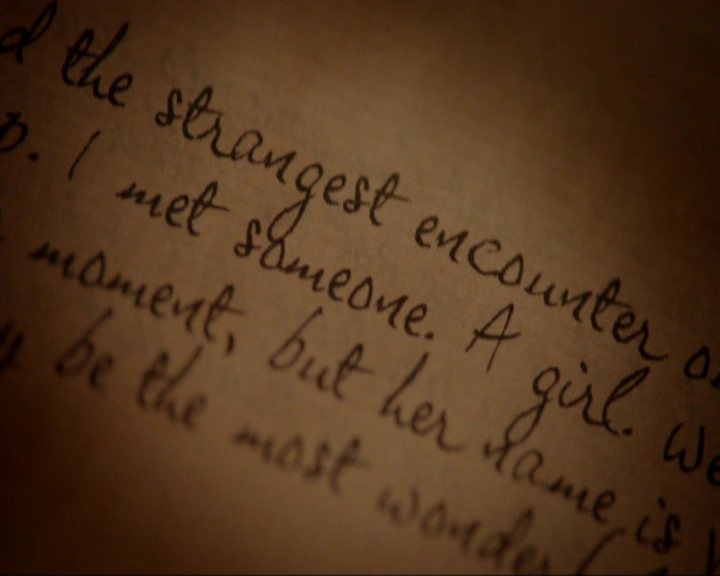 the strangest encounter
I met someone. A girl. We
moment, but her name is
be the most